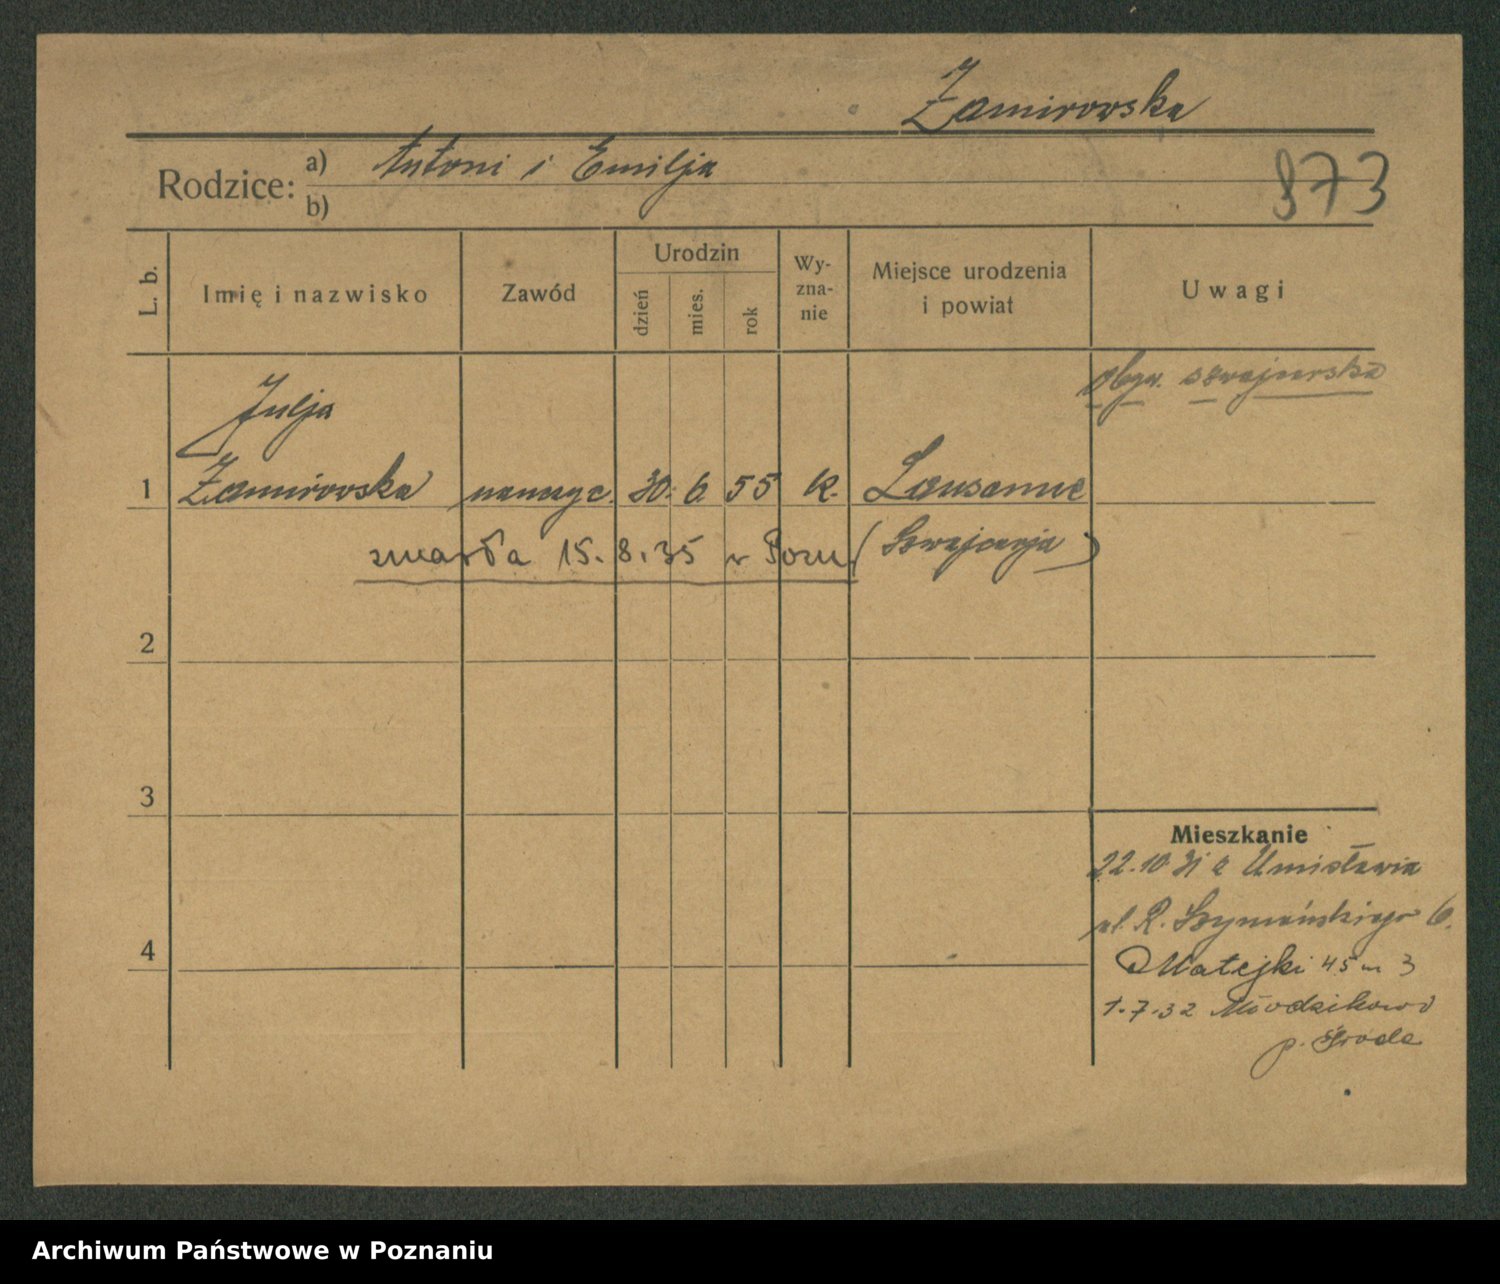 Zamirowska
Rodzice: a) Antoni i Emilja
b)
873
L. b.
Imię i nazwisko
Zawód
Urodzin
dzień
mies.
rok
Wy-
zna-
nie
Miejsce urodzenia
i powiat
Uwagi
obyw. szwajcarska
Julja
1 Zamirowska nauczyc. 30. 6. 55 k. Lausanne
zmarła 15. 8. 35 w Pozn. (Szwajcarja)
2
3
4
Mieszkanie
22.10.31 z Umisławia
ul. R. Szymańskiego 6.
Matejki 45 m 3
1.7.32
p. Środa
Archiwum Państwowe w Poznaniu